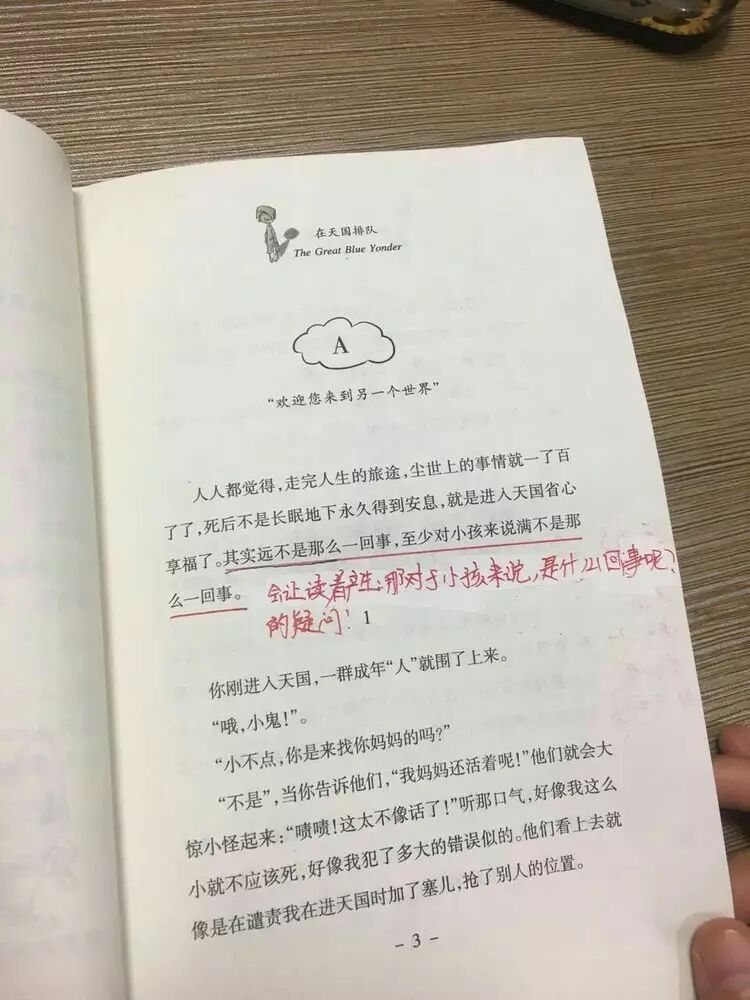 在天国排队
The Great Blue Yonder
A
“欢迎您来到另一个世界”
人人都觉得,走完人生的旅途,尘世上的事情就一了百
了了,死后不是长眠地下永久得到安息,就是进入天国省心
享福了。其实远不是那么一回事,至少对小孩来说满不是那
么一回事。
会让读着产生:那对于小孩来说,是什么回事呢?
的疑问!
1
你刚进入天国,一群成年“人”就围了上来。
“哦,小鬼!”。
“小不点,你是来找你妈妈的吗?”
“不是”,当你告诉他们,“我妈妈还活着呢!”他们就会大
惊小怪起来:“啧啧!这太不像话了!”听那口气,好像我这么
小就不应该死,好像我犯了多大的错误似的。他们看上去就
像是在谴责我在进天国时加了塞儿,抢了别人的位置。
- 3 -